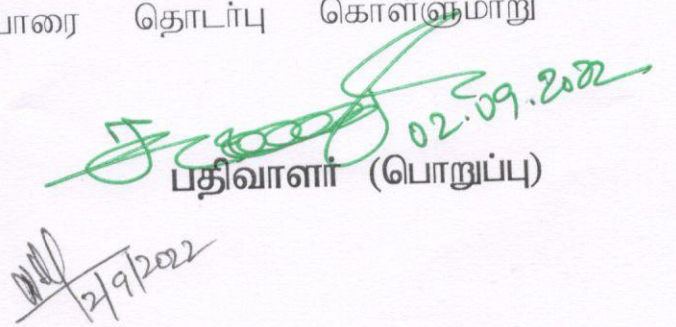 பாரை தொடர்பு கொள்ளுமாறு
02.09.2022
பதிவாளர் (பொறுப்பு)
2/9/2022